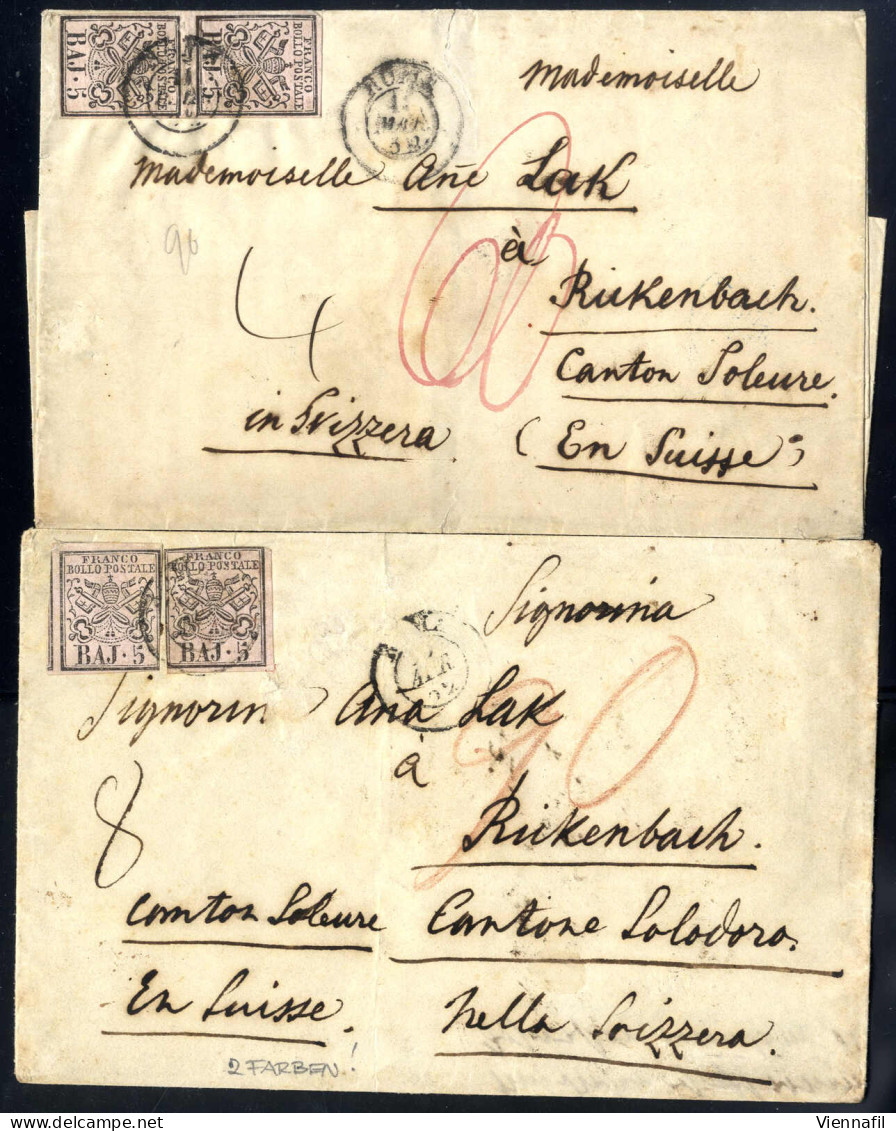 FRANCO
BOLLO POSTALE
BAJ · 5
FRANCO
BOLLO POSTALE
BAJ · 5
ROMA
MAR
52
Mademoiselle
Mademoiselle Añe Lak
à
Rickenbach.
Canton Soleure.
in Svizzera (En Suisse)
90
4
60
FRANCO
BOLLO POSTALE
BAJ · 5
FRANCO
BOLLO POSTALE
BAJ · 5
APR
52
Signorina
Signorin Ana Lak
à
90
8
Rickenbach.
Comton Soleure Cantone Solodoro.
En Suisse. nella Svizzera.
2 FARBEN!
Viennafil